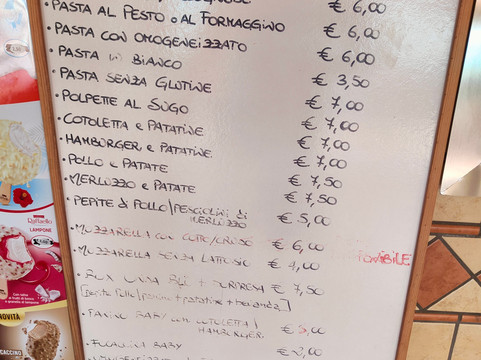 € 6,00
• PASTA AL PESTO O AL FORMAGGINO € 6,00
• PASTA CON OMOGENEIZZATO € 6,00
• PASTA IN BIANCO € 3,50
• PASTA SENZA GLUTINE € 7,00
• POLPETTE AL SUGO € 7,00
• COTOLETTA e PATATINE € 7,00
• HAMBURGER e PATATINE € 7,50
• POLLO e PATATE € 7,50
• MERLUZZO e PATATE € 5,00
• PEPITE di POLLO/PESCIOLINI di
MERLUZZO
• MOZZARELLA CON COTTO/CRUDO € 6,00
• MOZZARELLA SENZA LATTOSIO € 4,00
SORPRESA € 7,50
+ patatine + bevanda]
• PANINO BABY CON COTOLETTA/
HAMBURGER €
BABY
Raffaello
LAMPONE
NOVITÀ